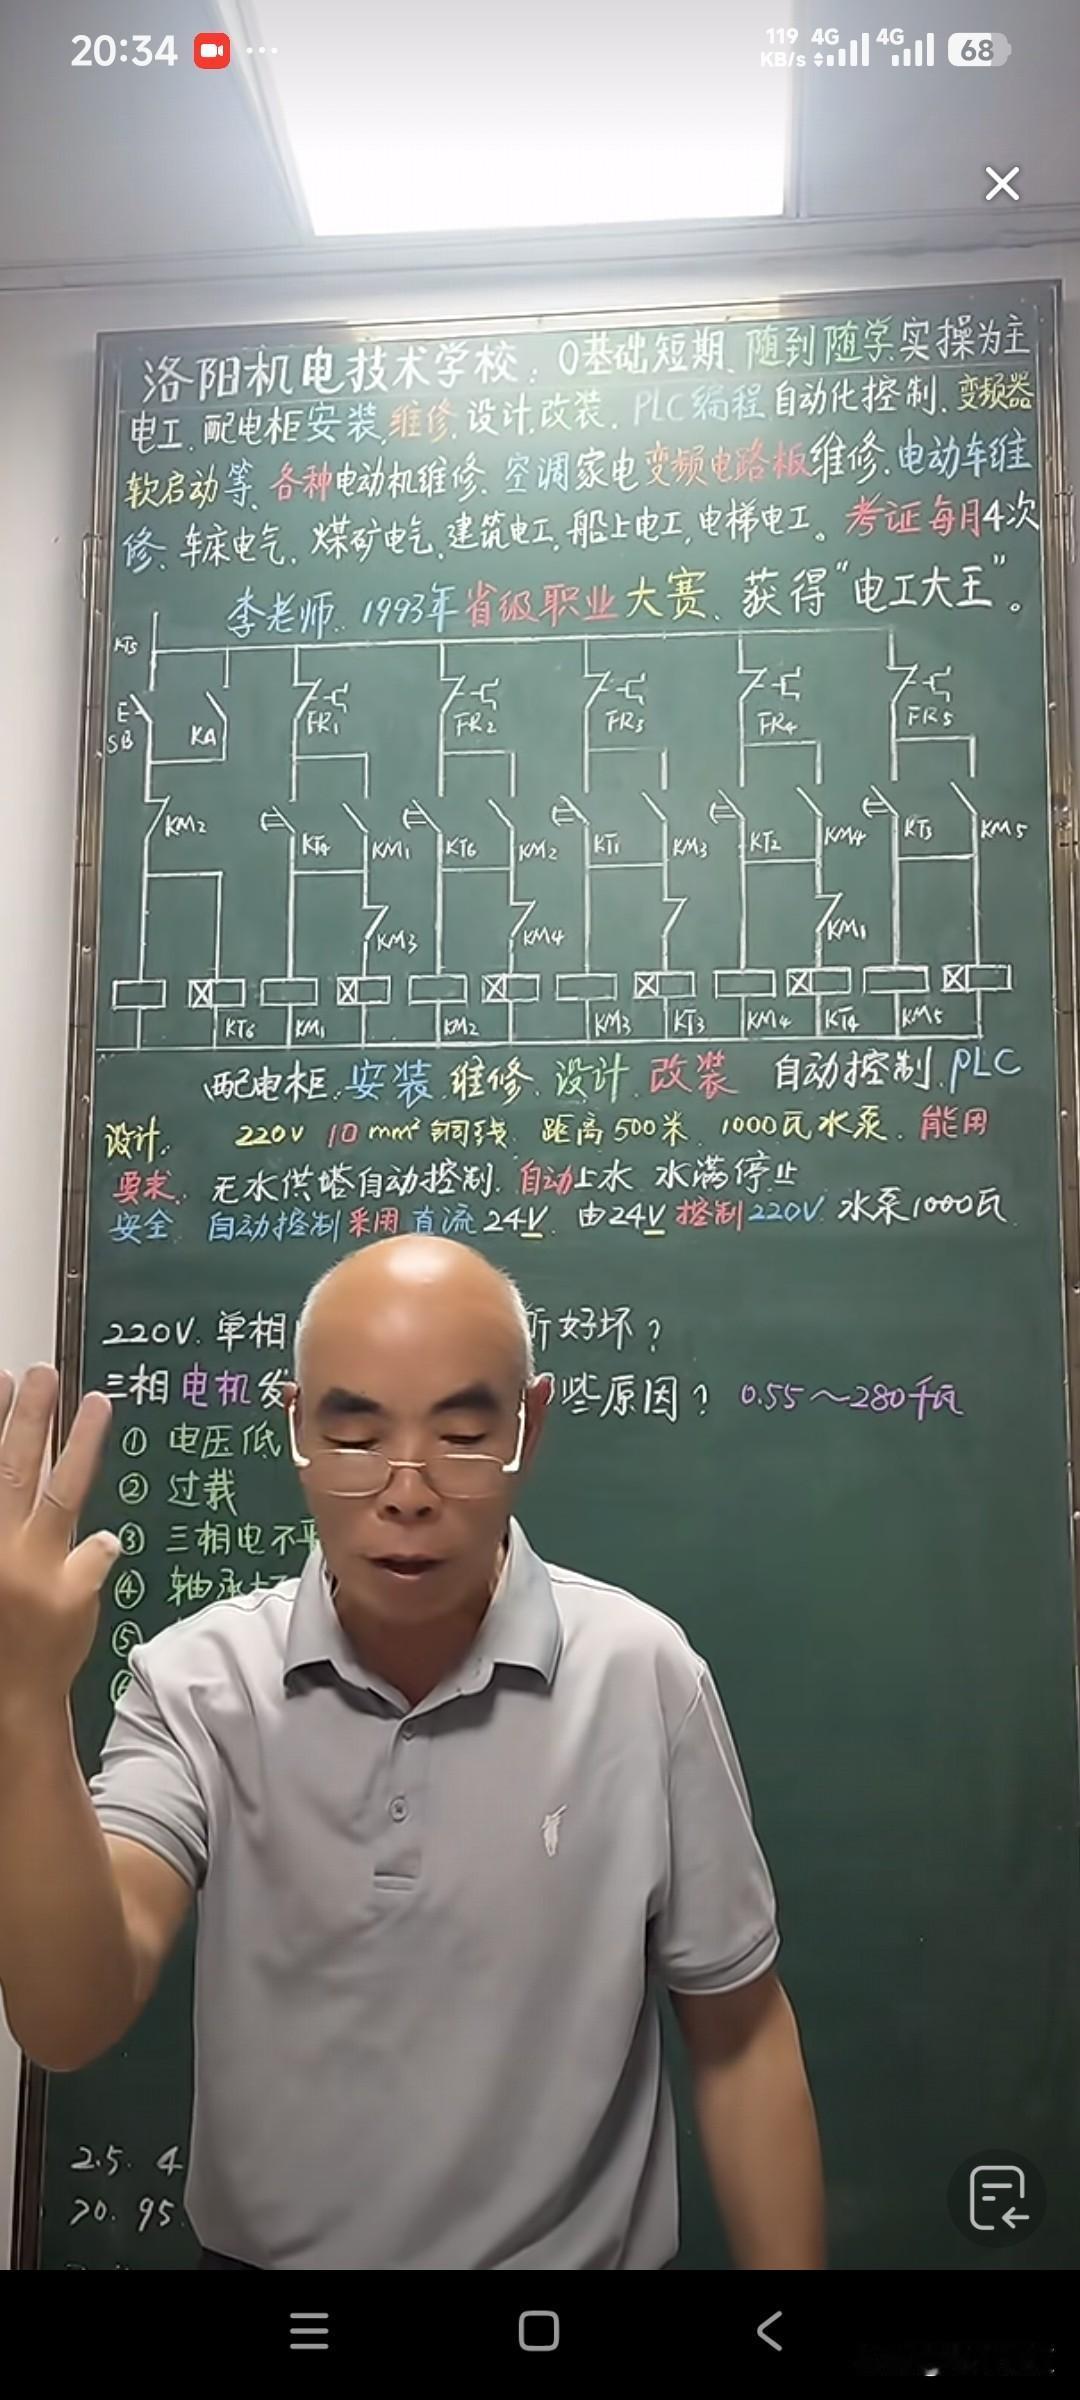 20:34
119 KB/s 4G 4G 68
洛阳机电技术学校：0基础短期、随到随学实操为主
电工、配电柜安装、维修、设计、改装、PLC编程自动化控制、变频器
软启动等、各种电动机维修、空调家电变频电路板维修、电动车维
修、车床电气、煤矿电气、建筑电工、船上电工、电梯电工。考证每月4次
李老师、1993年省级职业大赛、获得“电工大王”。
KT5
E SB KA FR1 FR2 FR3 FR4 FR5
KM2 KT4 KM1 KT6 KM2 KT1 KM3 KT2 KM4 KT3 KM5
KM3 KM4 KM1
KT6 KM1 KM2 KM3 KT3 KM4 KT4 KM5
配电柜、安装、维修、设计、改装 自动控制、PLC
设计、220V 10mm²铜线、距离500米、1000瓦水泵、能用
要求、无水供塔自动控制、自动上水 水满停止
安全 自动控制采用直流24V、由24V控制220V 水泵1000瓦
220V、单相 好坏？
三相电机发 些原因？ 0.55～280千瓦
① 电压低
② 过载
③ 三相电不
④ 轴承
⑤
2.5. 4
70. 95.